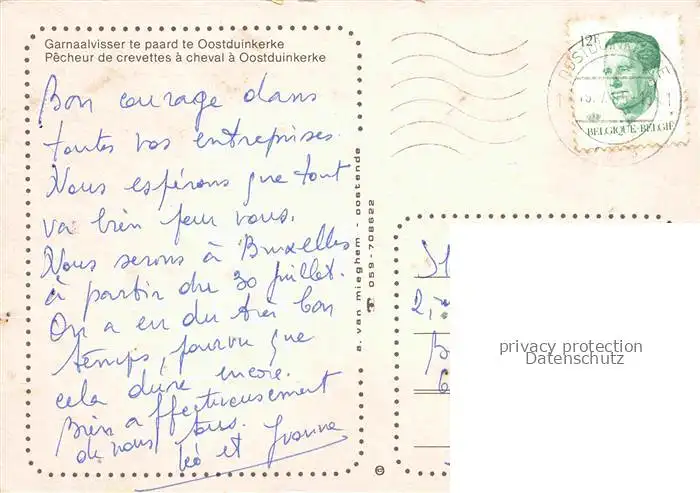 Garnaalvisser te paard te Oostduinkerke
Pêcheur de crevettes à cheval à Oostduinkerke
Bon courage dans
toutes vos entreprises.
Nous espérons que tout
va bien pour vous.
Nous serons à Bruxelles
à partir du 30 juillet.
On a eu du très bon
temps, pourvu que
cela dure encore.
Bien affectueusement
de nous tous.
Léo et Yvonne
a. van mieghem - oostende
059-706622
12F
BELGIQUE-BELGIË
privacy protection
Datenschutz